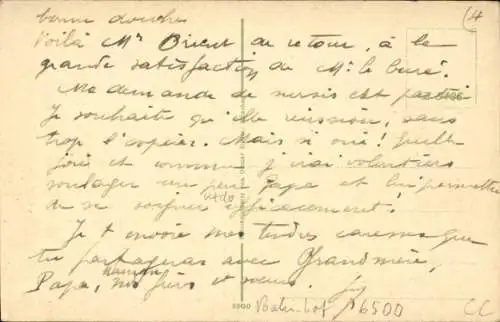 bonne douche
Voilà Mr Drieux de retour, à la
grande satisfaction de Mr le Curé.
Ma demande de sursis est partie
Je souhaite qu'elle réussisse, sans
trop l'espérer. Mais si oui! Quelle
joie et comme j'irai volontiers
soulager un peu Papa et lui permettre
de se soigner efficacement!
Je t'envoie mes tendres caresses que
tu partageras avec Grandmère,
Papa, Maman, mes frères et sœurs.
Bahnhof 6500